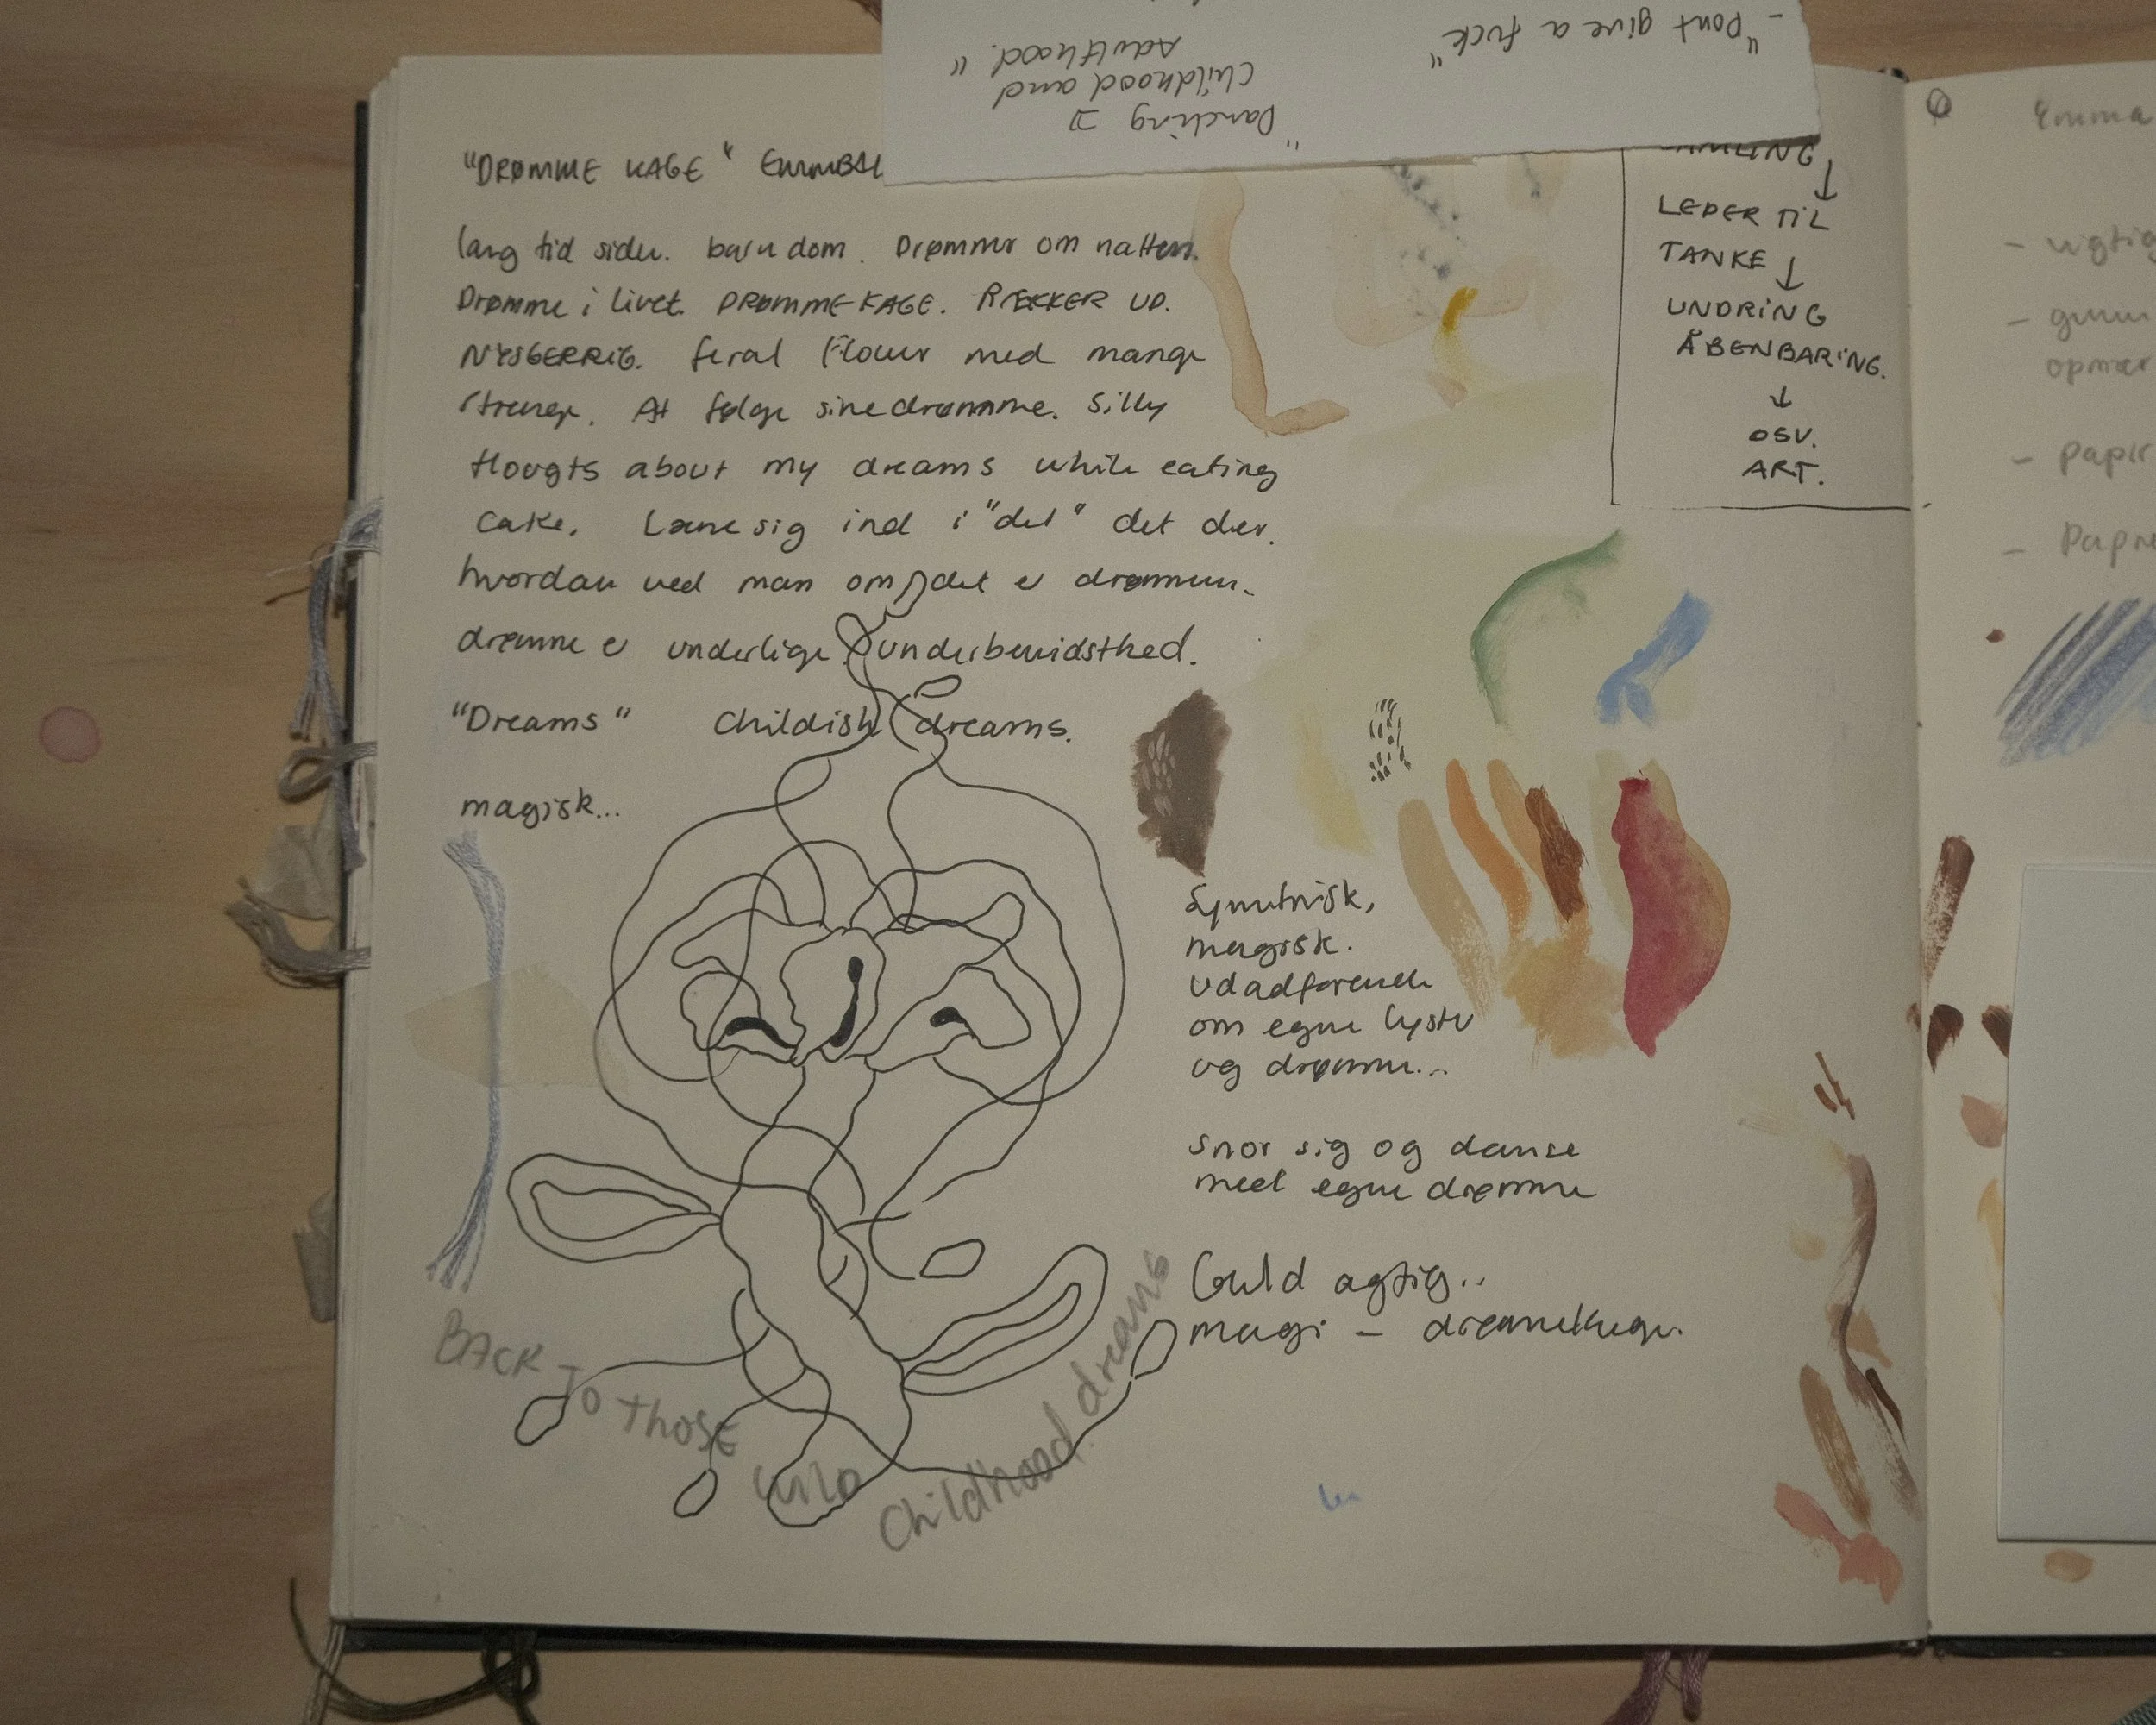 - "Dont give a fuck"
"Danching I
Childhood and
Adulthood."
"DRØMME KAGE"
lang tid siden. barndom. Drømmer om natten.
Drømme i livet. DRØMMEKAGE. RÆKKER UD.
NYSGERRIG. feral flower med mange
strenge. At følge sine drømme. Silly
thougts about my dreams while eating
cake. Læne sig ind i "det" det der.
hvordan ved man om det er drømmen.
drømme er underlige. underbevidsthed.
"Dreams" Childish dreams.
magisk...
LEDER TIL
TANKE ↓
UNDRING
ÅBENBARING.
↓
OSV.
ART.
Symetrisk,
magisk.
Udadførende
om egne lyster
og drømme...
Snor sig og danse
med egne drømme
Guld agtig..
magi -
BACK TO THOSE
WILD
Childhood dreams
Emma
- vigtig
-
- papir
-